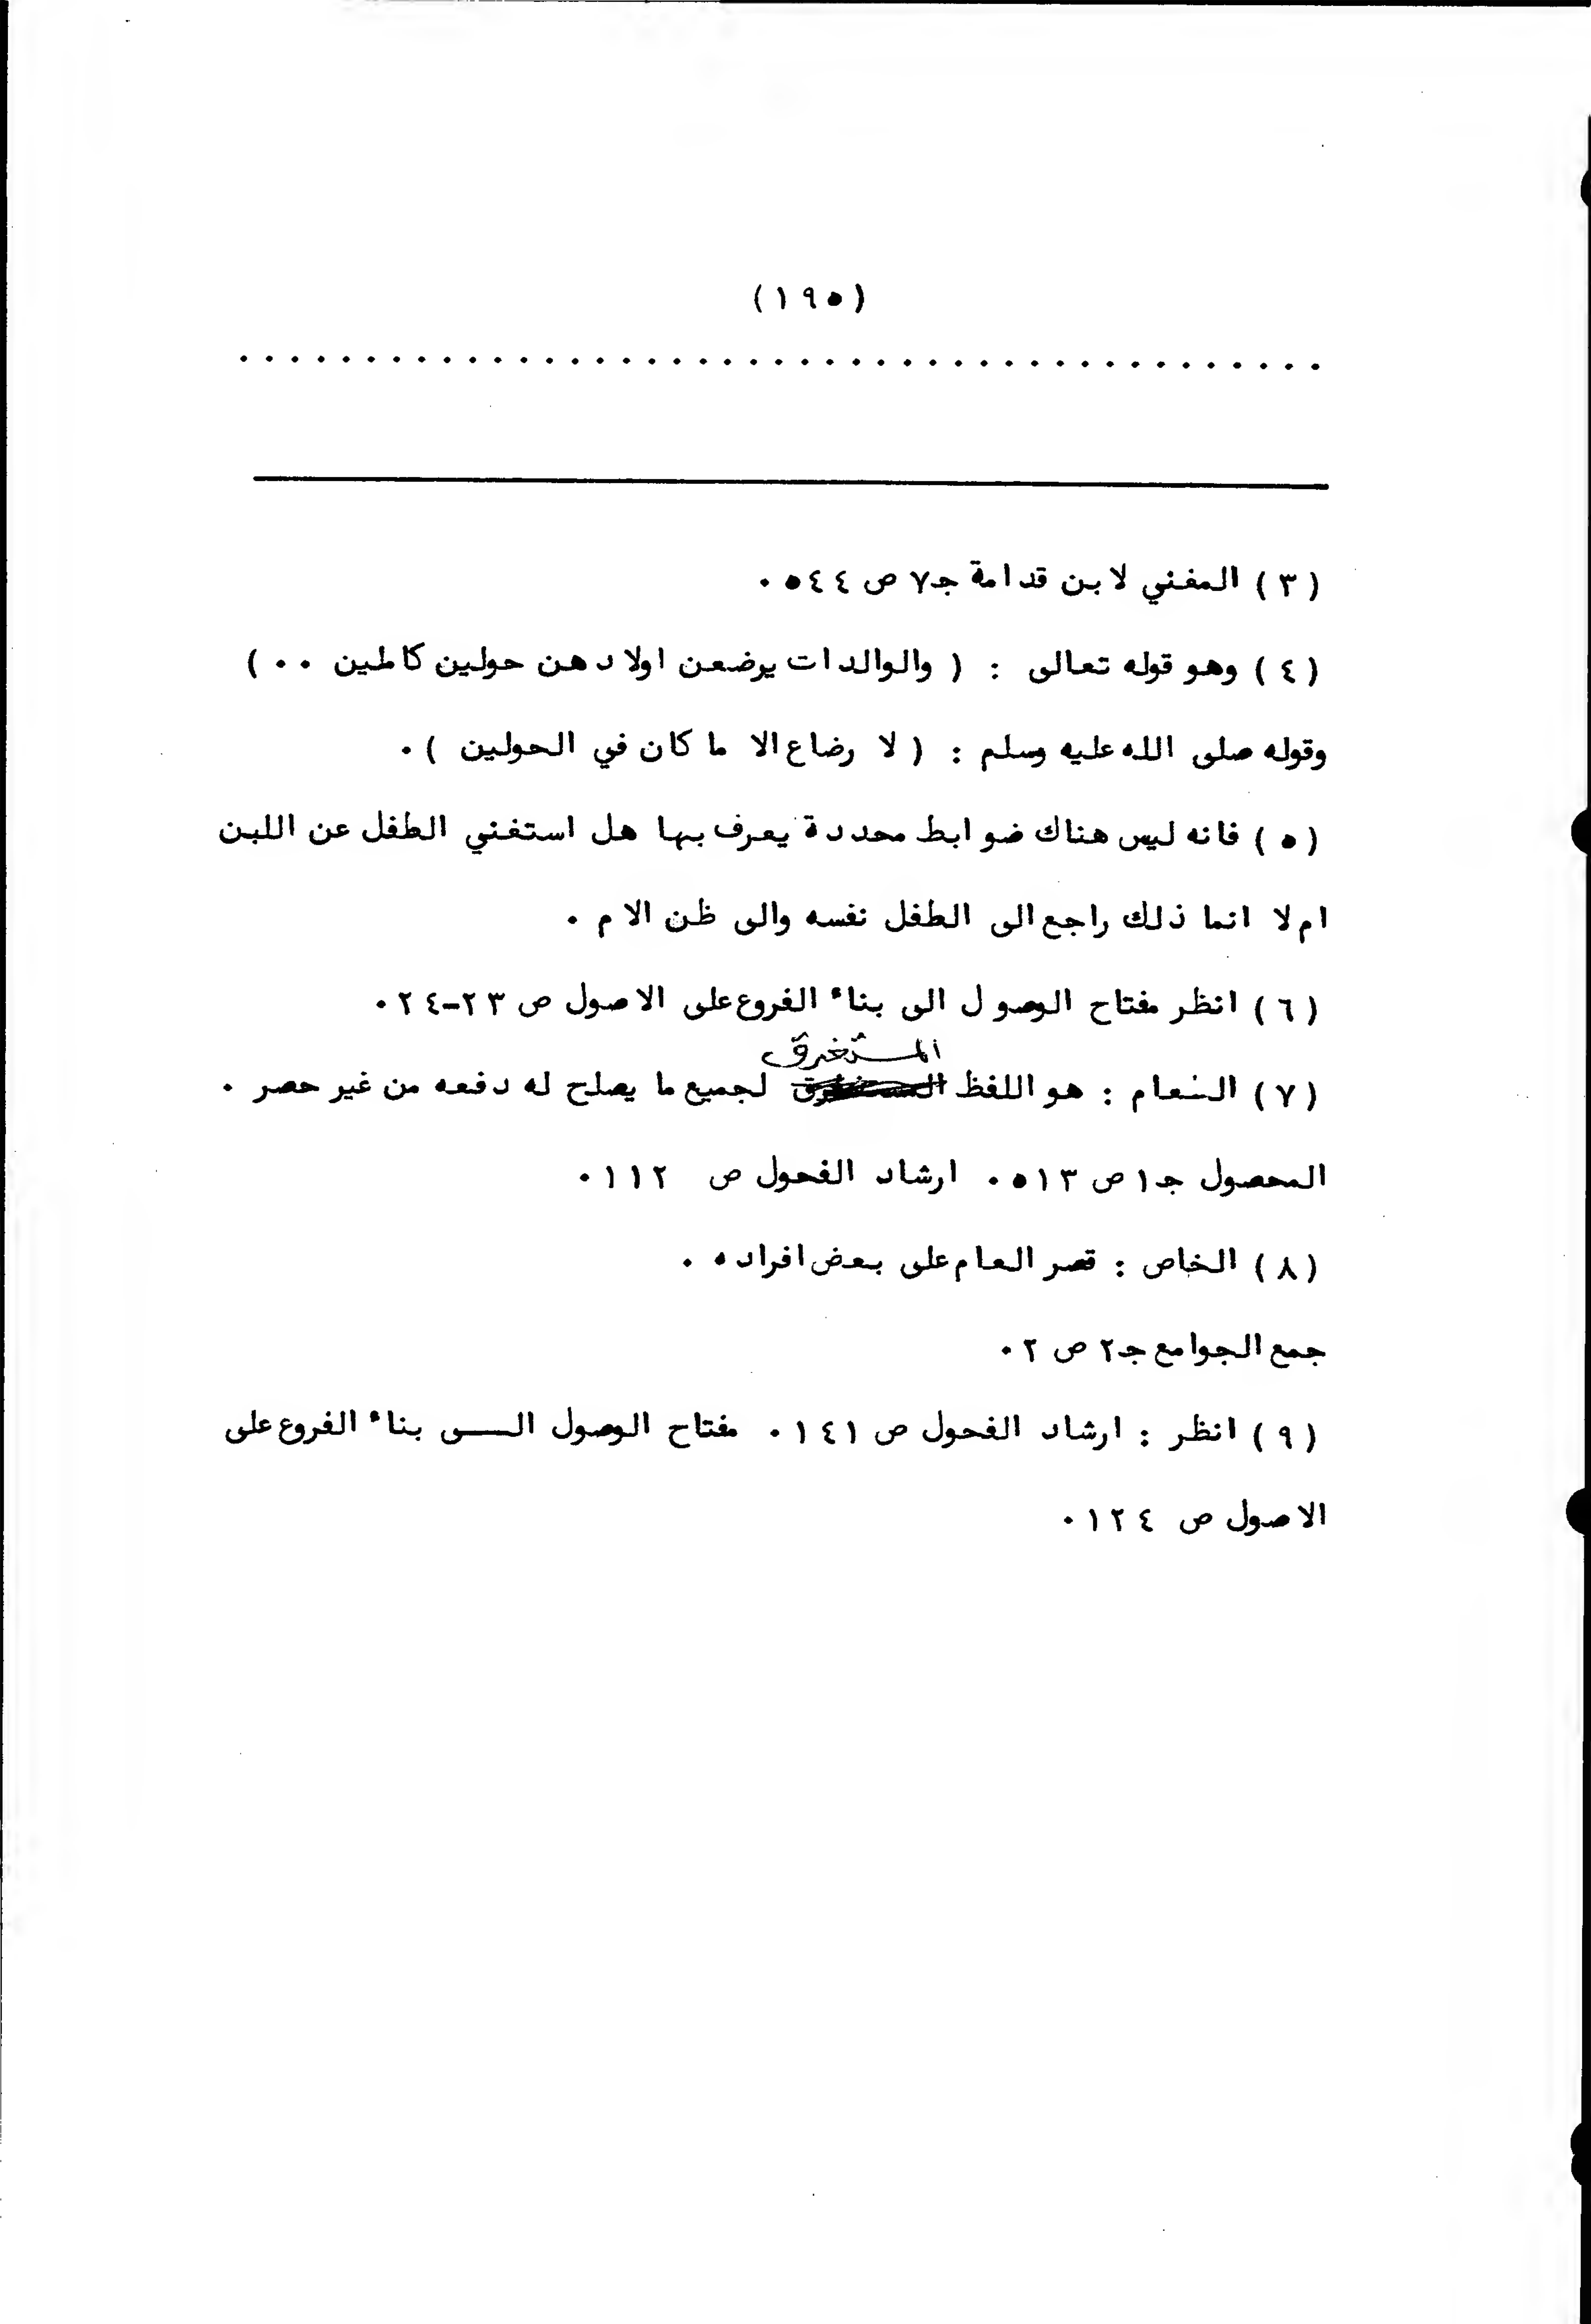 (١٩٥)
. . . . . . . . . . . . . . . . . . . . . . . . . . . . . . . . . . . . . . . . . . .
(٣) المغني لابن قدامة جـ٧ ص ٥٤٤ .
(٤) وهو قوله تعالى : ( والوالدات يرضعن اولادهن حولين كاملين .. )
وقوله صلى الله عليه وسلم : ( لا رضاع الا ما كان في الحولين ) .
(٥) فانه ليس هناك ضوابط محددة يعرف بها هل استغني الطفل عن اللبن
ام لا انما ذلك راجع الى الطفل نفسه والى ظن الام .
(٦) انظر مفتاح الوصول الى بناء الفروع على الاصول ص ٢٣-٢٤ .
(٧) العام : هو اللفظ المستغرق لجميع ما يصلح له دفعه من غير حصر .
المحصول جـ١ ص ٥١٣ . ارشاد الفحول ص ١١٢ .
(٨) الخاص : قصر العام على بعض افراده .
جمع الجوامع جـ٢ ص ٢ .
(٩) انظر : ارشاد الفحول ص ١٤١ . مفتاح الوصول الــى بناء الفروع على
الاصول ص ١٢٤ .